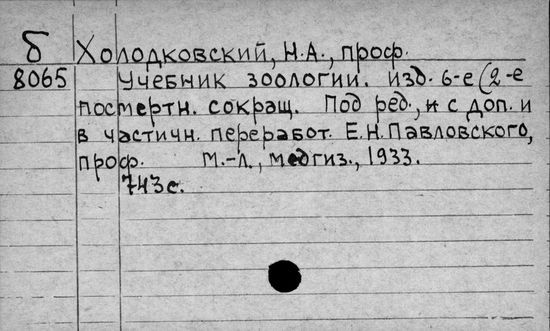 Б Холодковский, Н.А., проф.
8065 Учебник зоологии. изд. 6-е (2-е
посмертн. сокращ. Под ред., и с доп. и
в частичн. переработ. Е.Н. Павловского,
проф. М.-Л., медгиз., 1933.
743 с.